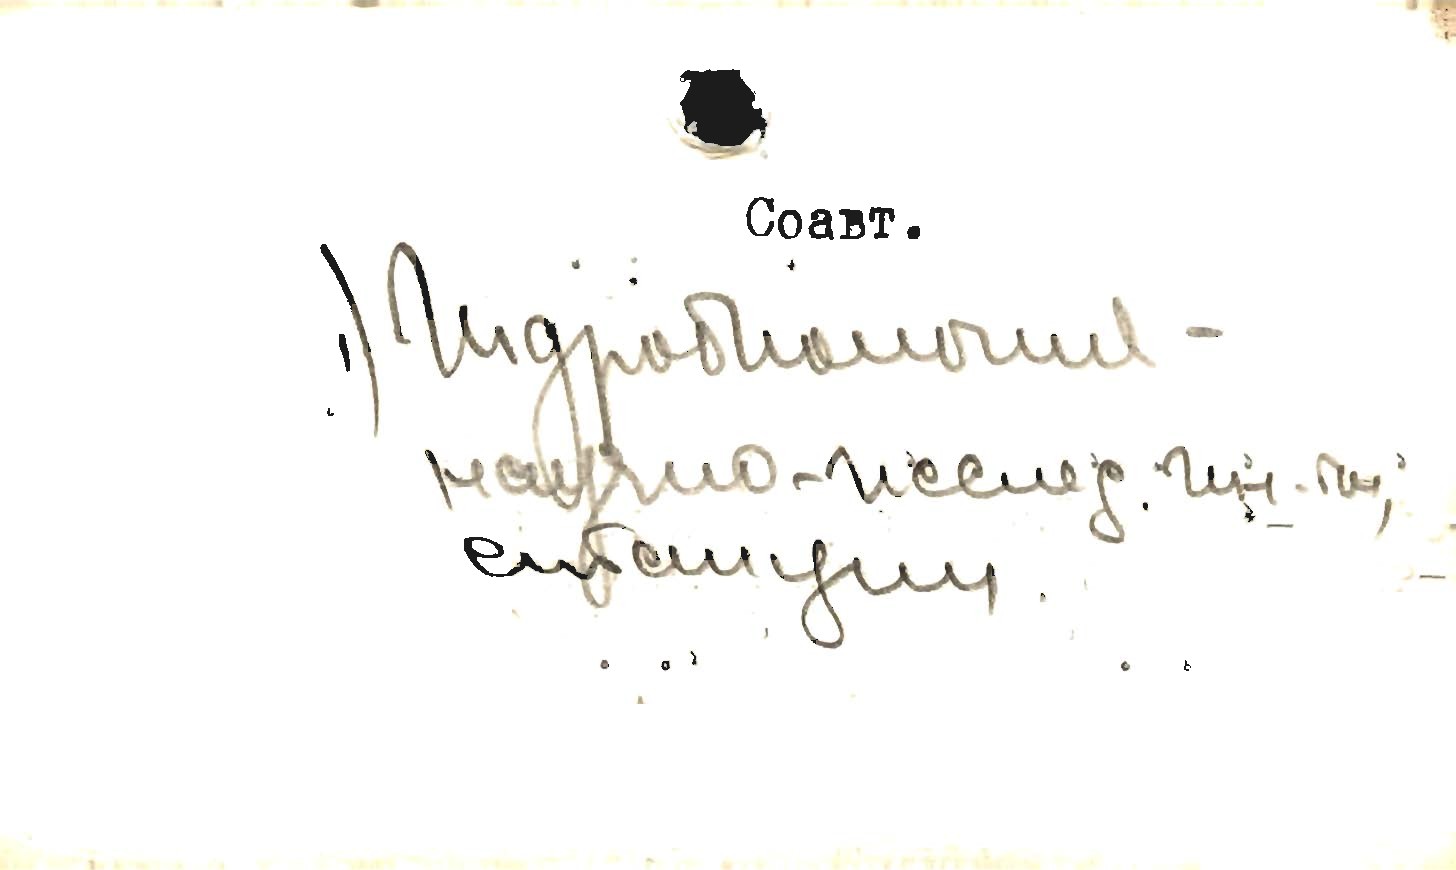 Соавт.
1) Гидробиология -
научно-исслед. ин-ты,
станции